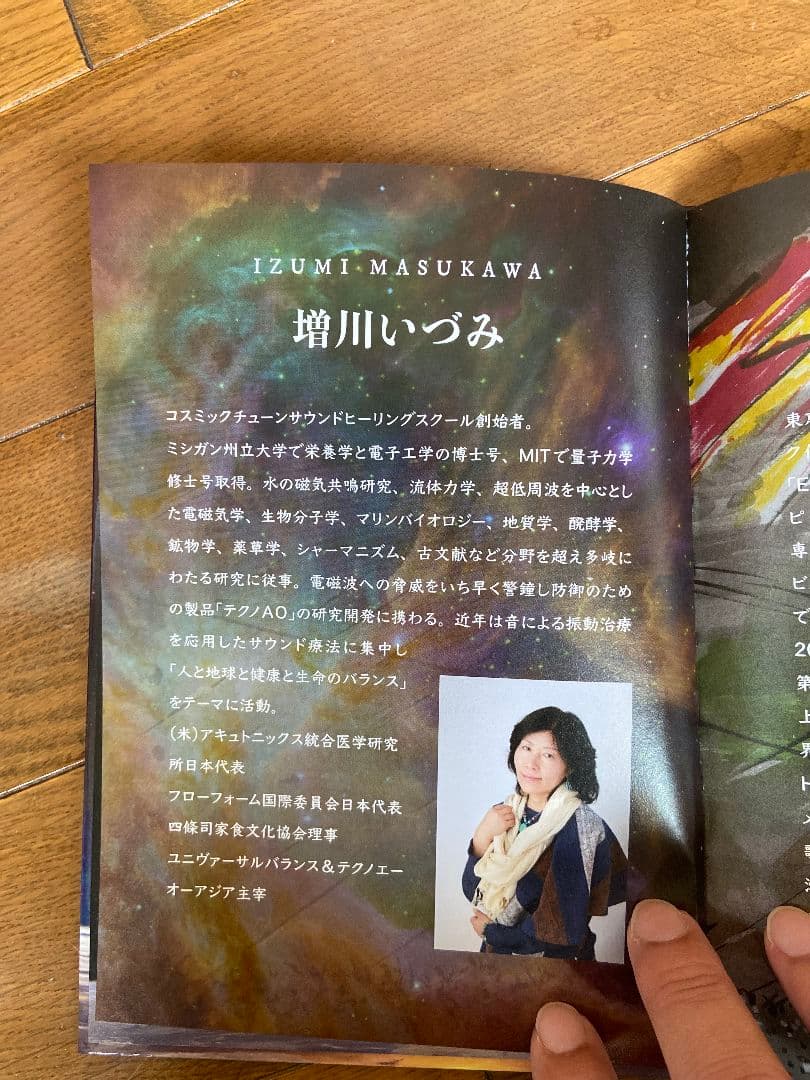 IZUMI MASUKAWA
増川いづみ
コスミックチューンサウンドヒーリングスクール創始者。
ミシガン州立大学で栄養学と電子工学の博士号、MITで量子力学
修士号取得。水の磁気共鳴研究、流体力学、超低周波を中心とし
た電磁気学、生物分子学、マリンバイオロジー、地質学、醗酵学、
鉱物学、薬草学、シャーマニズム、古文献など分野を超え多岐に
わたる研究に従事。電磁波への脅威をいち早く警鐘し防御のため
の製品「テクノAO」の研究開発に携わる。近年は音による振動治療
を応用したサウンド療法に集中し
「人と地球と健康と生命のバランス」
をテーマに活動。
(米)アキュトニックス統合医学研究
所日本代表
フローフォーム国際委員会日本代表
四條司家食文化協会理事
ユニヴァーサルバランス&テクノエー
オーアジア主宰
東
ク
「E
ピ
専
ビ
で
20
第
上
界